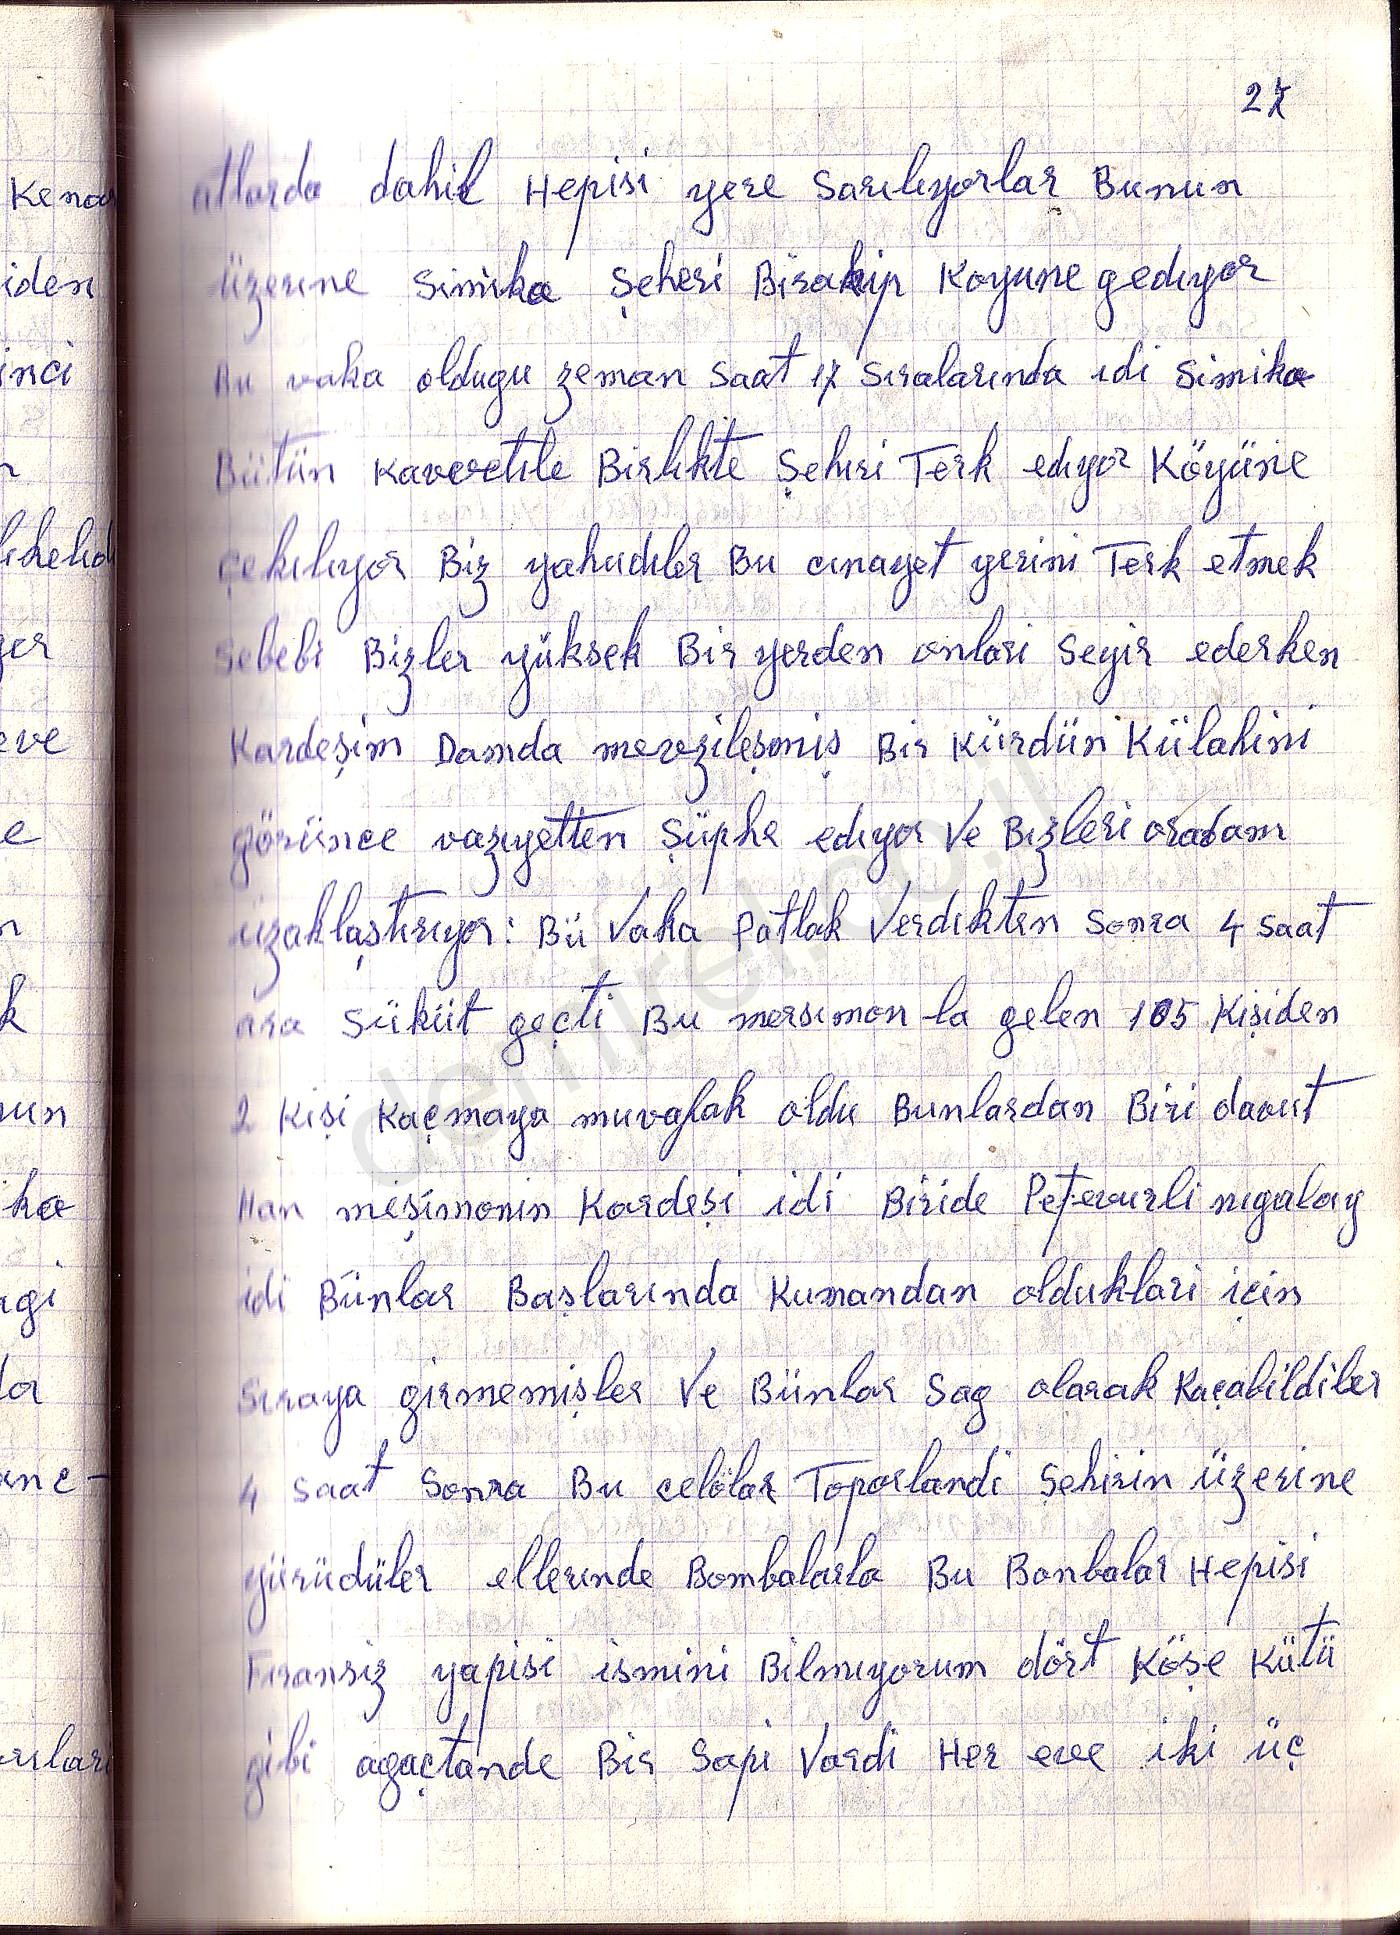 27
atlarda dahil Hepisi yere Sarılıyorlar Bunun
üzerıne Simika Şeheri Birakip Koyune gedıyor
Bu vaka oldugu zeman Saat 17 Sıralarında ıdi Simika
Bütün Kavvetıle Birlıkte Şehıri Terk edıyor Köyüne
çekılıyor Biz yahudıler Bu cınayet yerini Terk etmek
Sebebi Bizler yüksek Bir yerden onlari Seyir ederken
Kardeşim Damda mevzileşmiş Bir Kürdün Külahini
görünce vazıyetten Şüphe edıyor Ve Bızleri oradam
üzaklaştırıyor: Bü Vaka Patlak Verdıkten Sonra 4 Saat
ara Süküt geçti Bu mersımon-la gelen 105 Kişiden
2 Kişi Kaçmaya muvafak oldu Bunlardan Biri davut
Han meşimonin Kardeşi idi Biride Petevurli nıgalay
idi Bünlar Başlarında Kumandan olduklari için
Sıraya girmemişler Ve Bünlar Sag olarak Kaçabildiler
4 Saat Sonra Bu celölar Toparlandi Şehirin üzerine
yürüdüler ellerınde Bombalarla Bu Bonbalar Hepisi
Fıransiz yapisi ismini Bilmıyorum dört Köşe Kütü
gibi agaçtande Bir Sapi Vardi Her eve iki üç
Kenar
iden
inci
yor
eve
e
n
k
nun
ika
agi
da
ane-
demirel.co.il